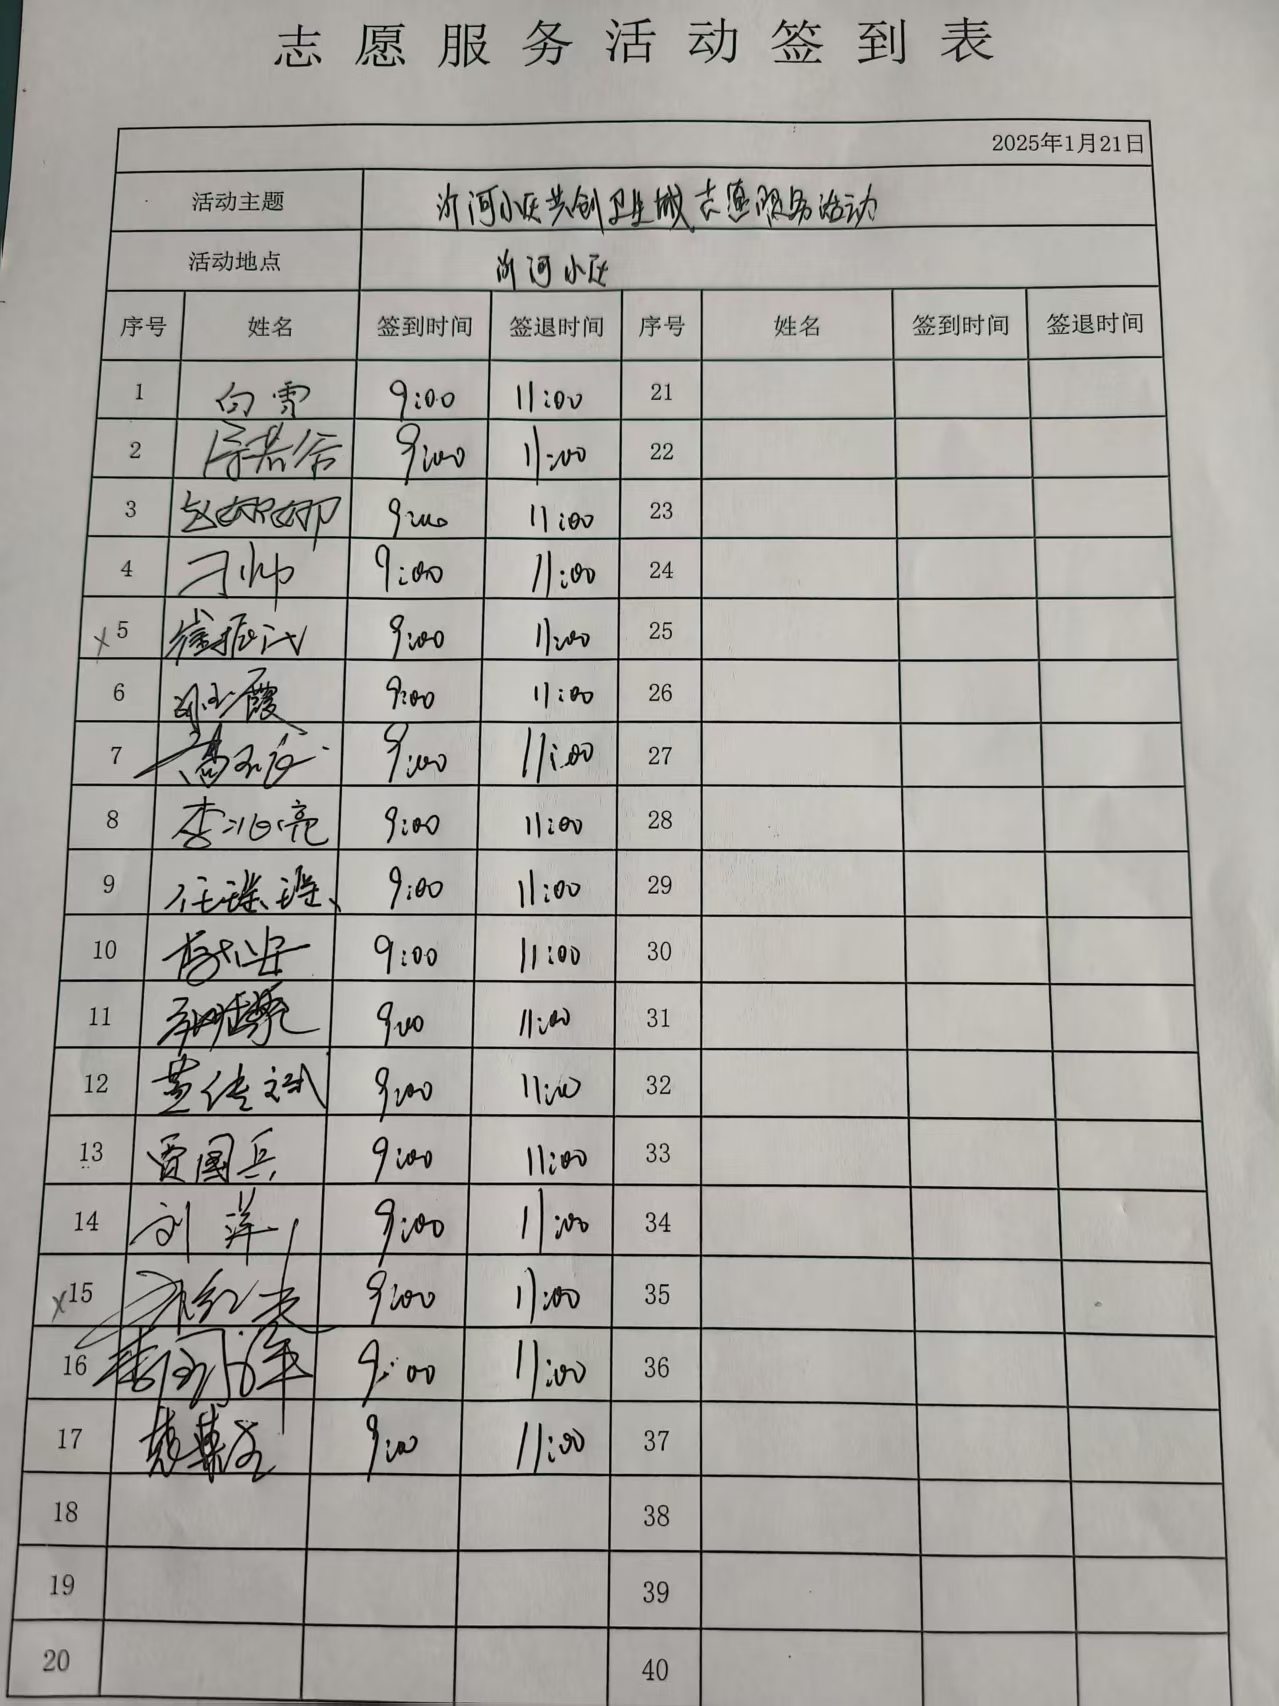 志愿服务活动签到表
2025年1月21日
活动主题 沂河小区共创卫生城志愿服务活动
活动地点 沂河小区
序号 姓名 签到时间 签退时间 序号 姓名 签到时间 签退时间
1 白雪 9:00 11:00 21
2 9:00 11:00 22
3 赵娜娜 9:00 11:00 23
4 刁帅 9:00 11:00 24
x 5 9:00 11:00 25
6 9:00 11:00 26
7 9:00 11:00 27
8 李兆亮 9:00 11:00 28
9 任瑶瑶 9:00 11:00 29
10 9:00 11:00 30
11 9:00 11:00 31
12 黄传斌 9:00 11:00 32
13 贾国兵 9:00 11:00 33
14 刘洋 9:00 11:00 34
x 15 9:00 11:00 35
16 9:00 11:00 36
17 9:00 11:00 37
18 38
19 39
20 40